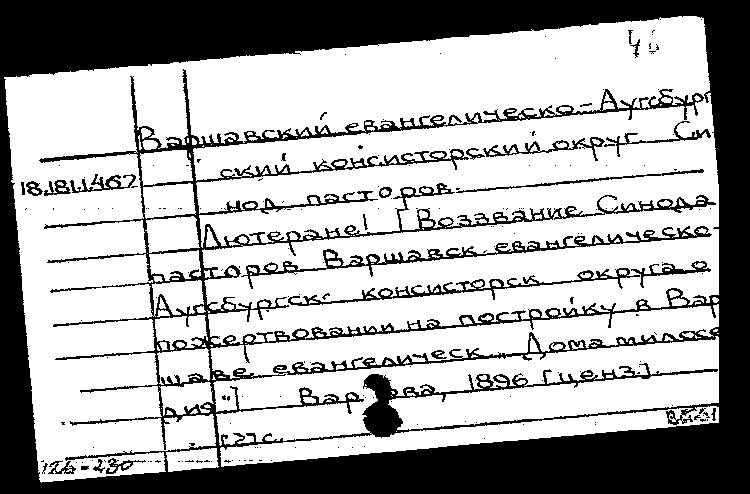 46
Варшавский евангелическо-Аугсбург
ский консисторский округ. Си
18.181.1.467
нод пасторов.
Лютеране! [Воззвание Синода
пасторов Варшавск евангелическо-
Аугсбургск. консисторск округа о
пожертвовании на постройку в Вар
шаве евангелическ. „Дома милосе
дия"] Варшава, 1896 [ценз].
[2] с.
126-230